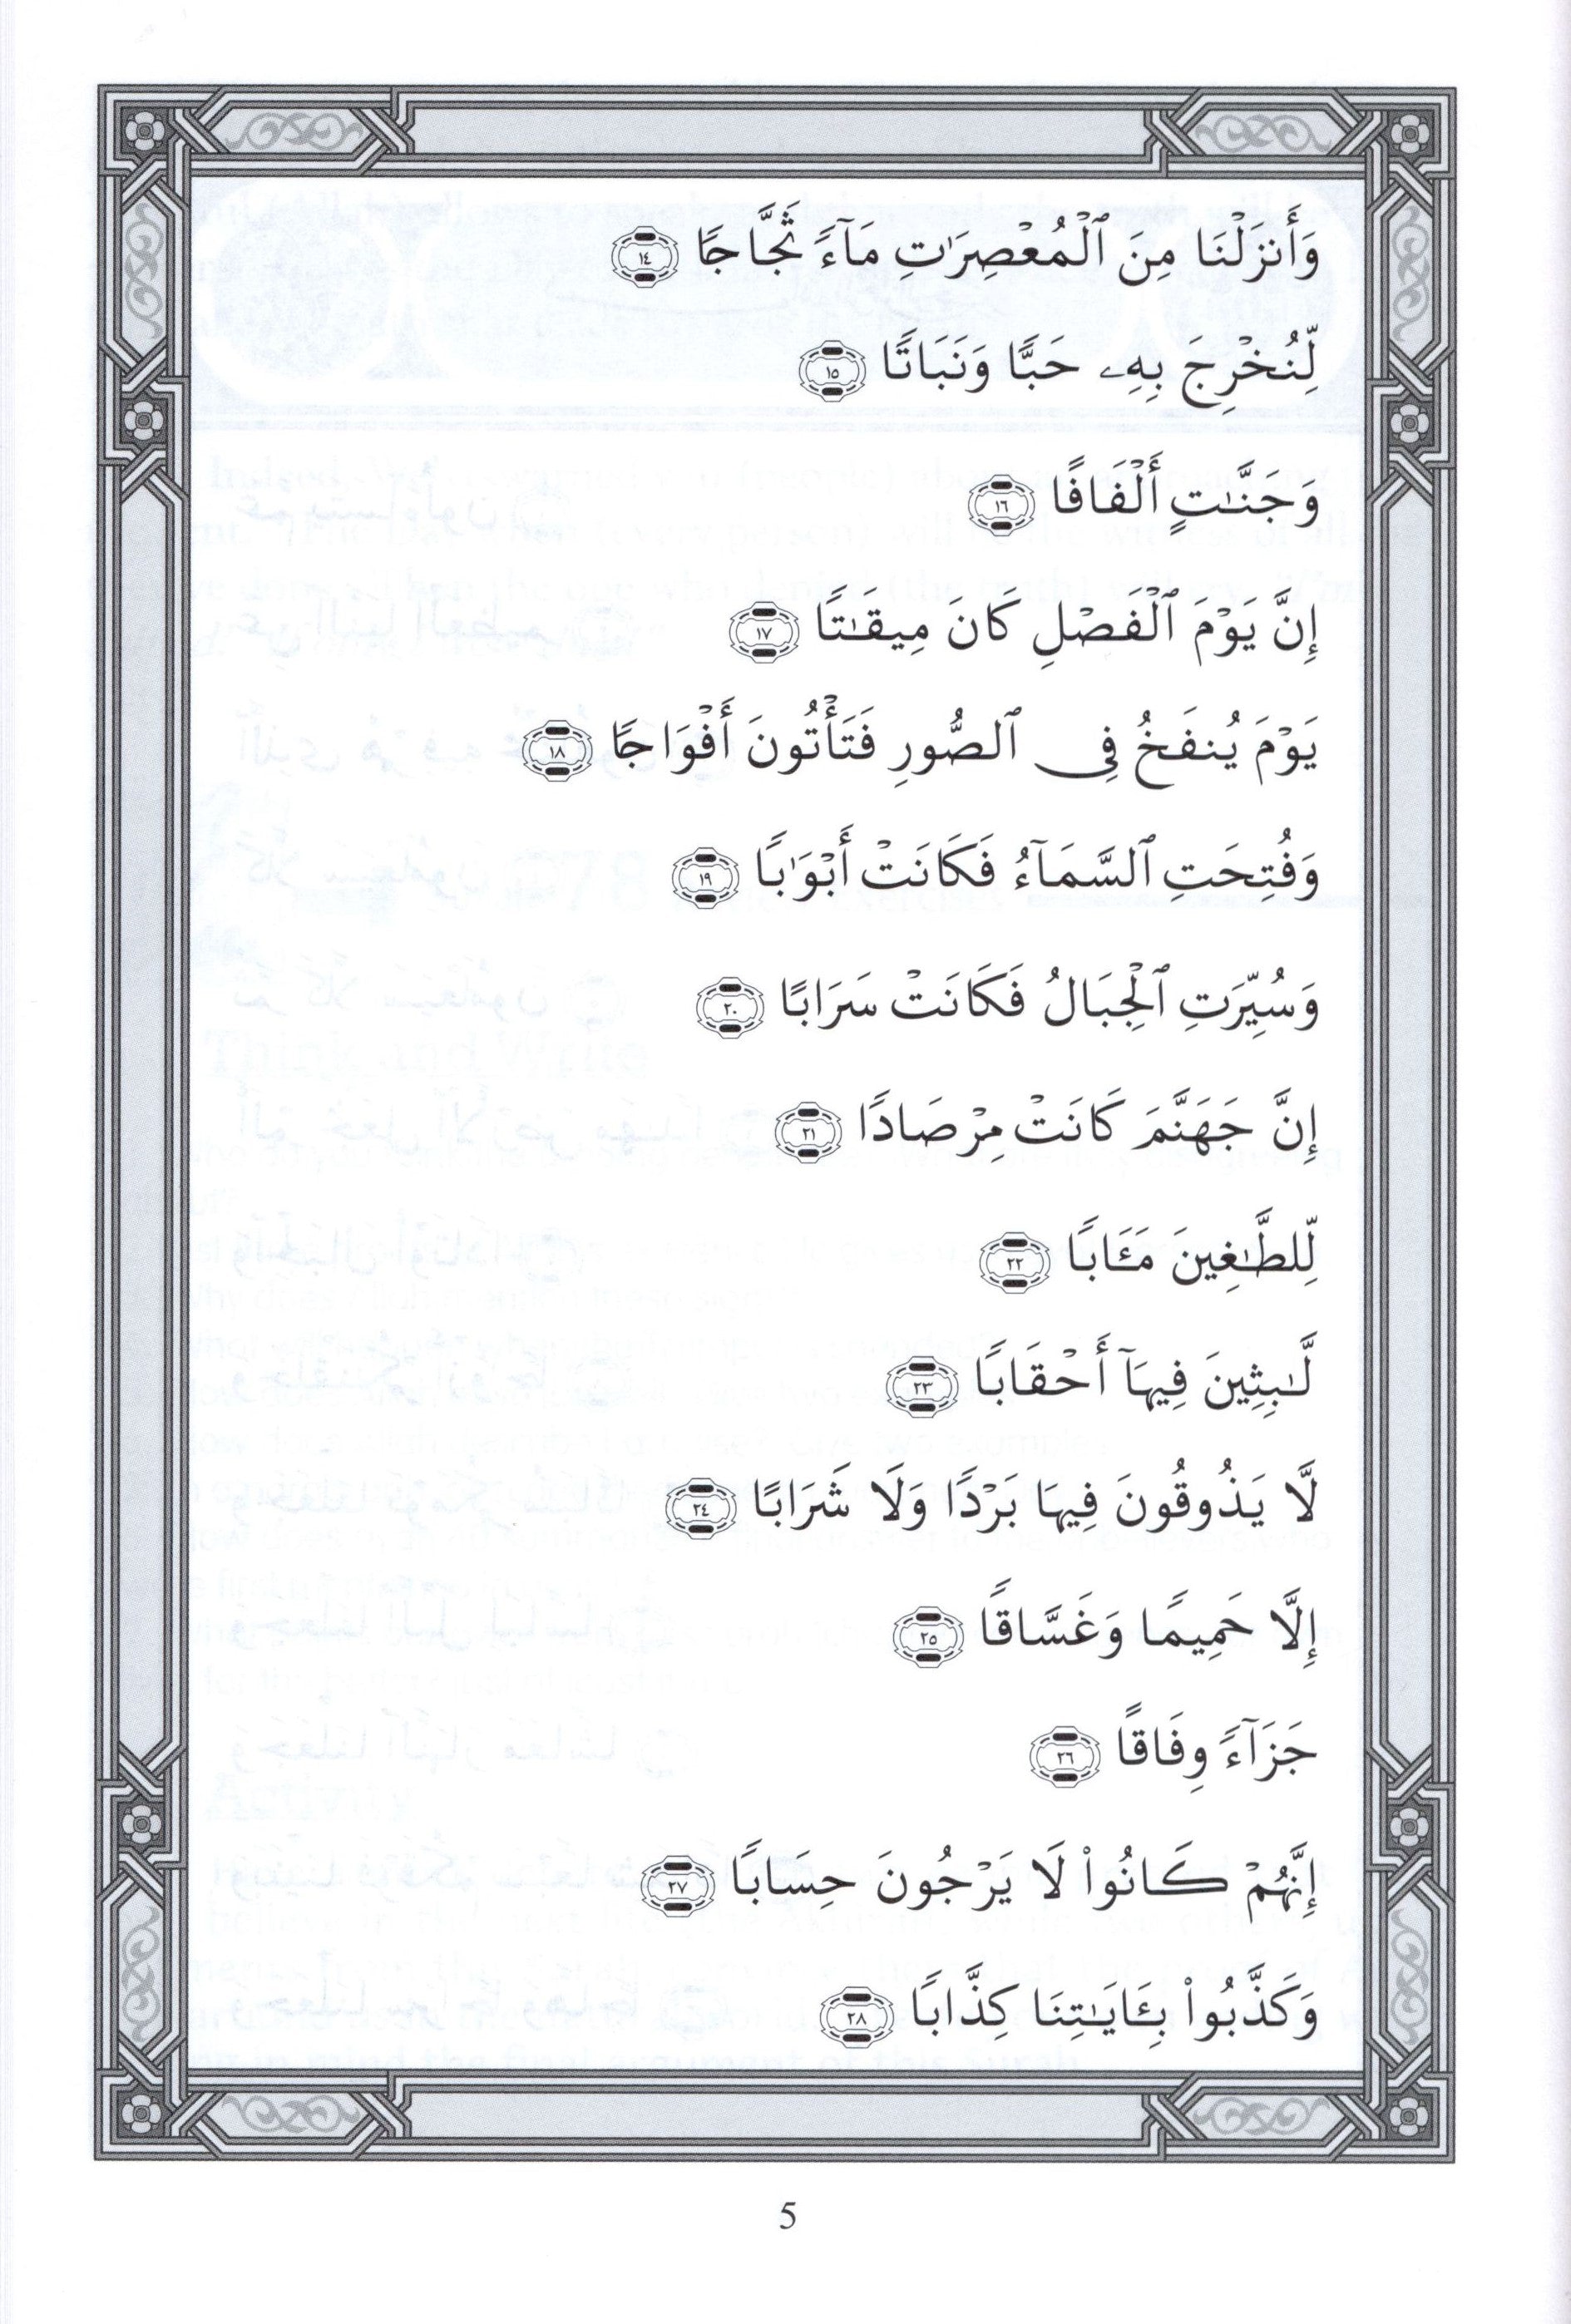 وَأَنزَلْنَا مِنَ ٱلْمُعْصِرَٰتِ مَآءً ثَجَّاجًا ١٤
لِّنُخْرِجَ بِهِۦ حَبًّا وَنَبَاتًا ١٥
وَجَنَّٰتٍ أَلْفَافًا ١٦
إِنَّ يَوْمَ ٱلْفَصْلِ كَانَ مِيقَٰتًا ١٧
يَوْمَ يُنفَخُ فِى ٱلصُّورِ فَتَأْتُونَ أَفْوَاجًا ١٨
وَفُتِحَتِ ٱلسَّمَآءُ فَكَانَتْ أَبْوَٰبًا ١٩
وَسُيِّرَتِ ٱلْجِبَالُ فَكَانَتْ سَرَابًا ٢٠
إِنَّ جَهَنَّمَ كَانَتْ مِرْصَادًا ٢١
لِّلطَّٰغِينَ مَـَٔابًا ٢٢
لَّٰبِثِينَ فِيهَآ أَحْقَابًا ٢٣
لَّا يَذُوقُونَ فِيهَا بَرْدًا وَلَا شَرَابًا ٢٤
إِلَّا حَمِيمًا وَغَسَّاقًا ٢٥
جَزَآءً وِفَاقًا ٢٦
إِنَّهُمْ كَانُوا۟ لَا يَرْجُونَ حِسَابًا ٢٧
وَكَذَّبُوا۟ بِـَٔايَٰتِنَا كِذَّابًا ٢٨
5